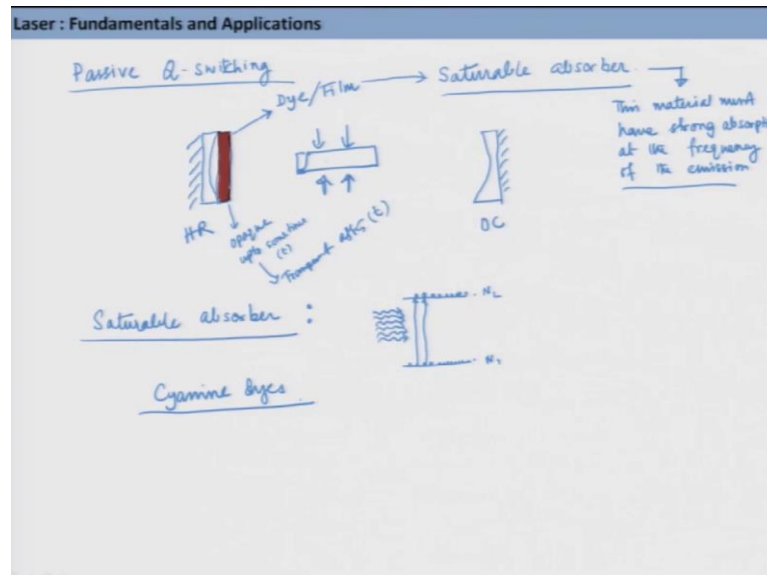 Laser : Fundamentals and Applications
Passive Q-switching
Dye/Film
Saturable absorber
This material must
have strong absorpt
at the frequency
of the emission
HR
opaque
upto some time
(t)
Transparent after (t)
OC
Saturable absorber :
N₂
N₁
Cyanine dyes